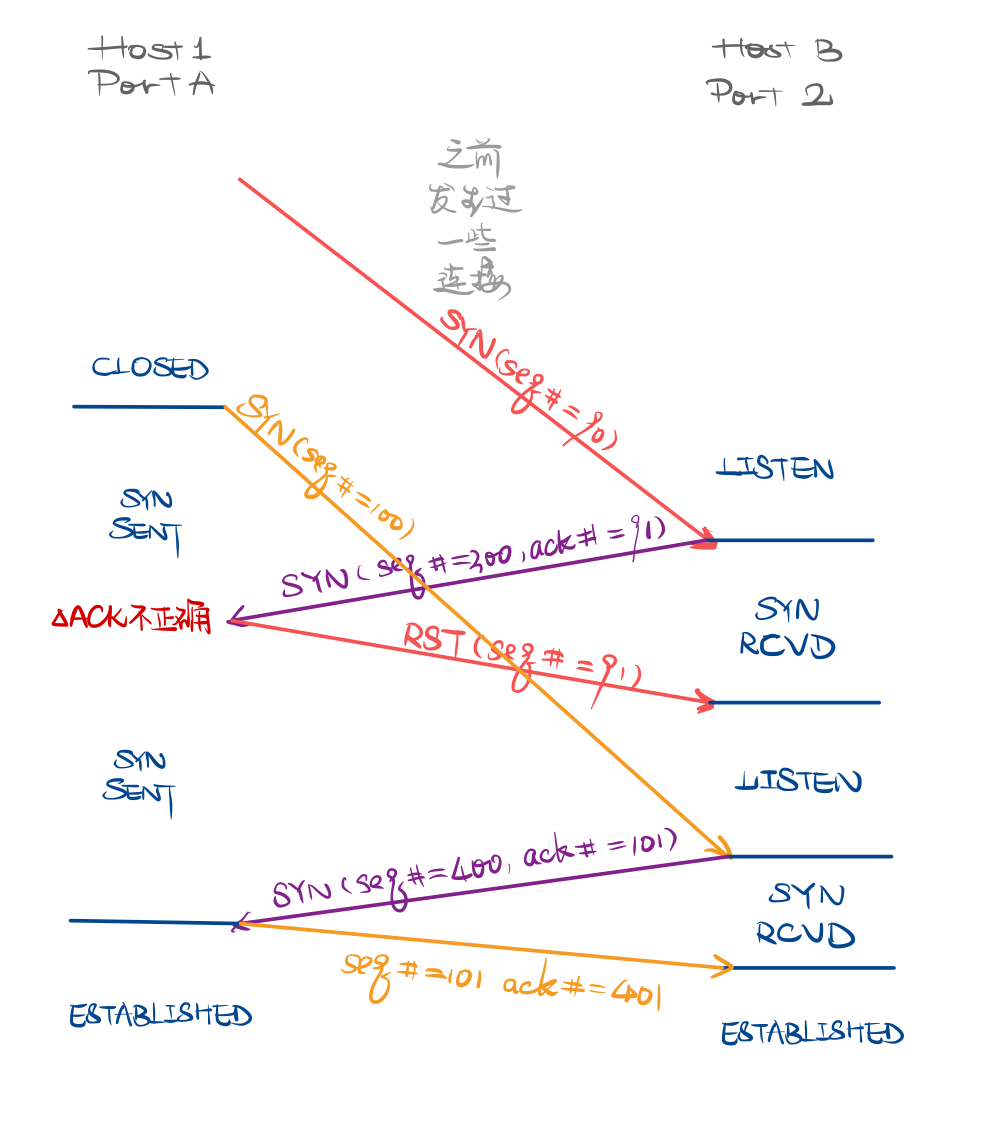 Host 1
Port A
Host B
Port 2
之前
发生过
一些
连接
SYN(seq#=90)
CLOSED
SYN(seq#=100)
LISTEN
SYN
SENT
SYN(seq#=300,ack#=91)
△ACK不正确
SYN
RCVD
RST(seq#=91)
SYN
SENT
LISTEN
SYN(seq#=400, ack#=101)
SYN
RCVD
seq#=101 ack#=401
ESTABLISHED
ESTABLISHED